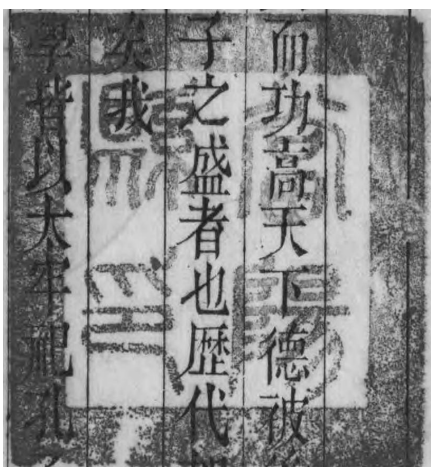 而功高天下德被
子之盛者也歷代
矣我
學皆以太牢祀孔